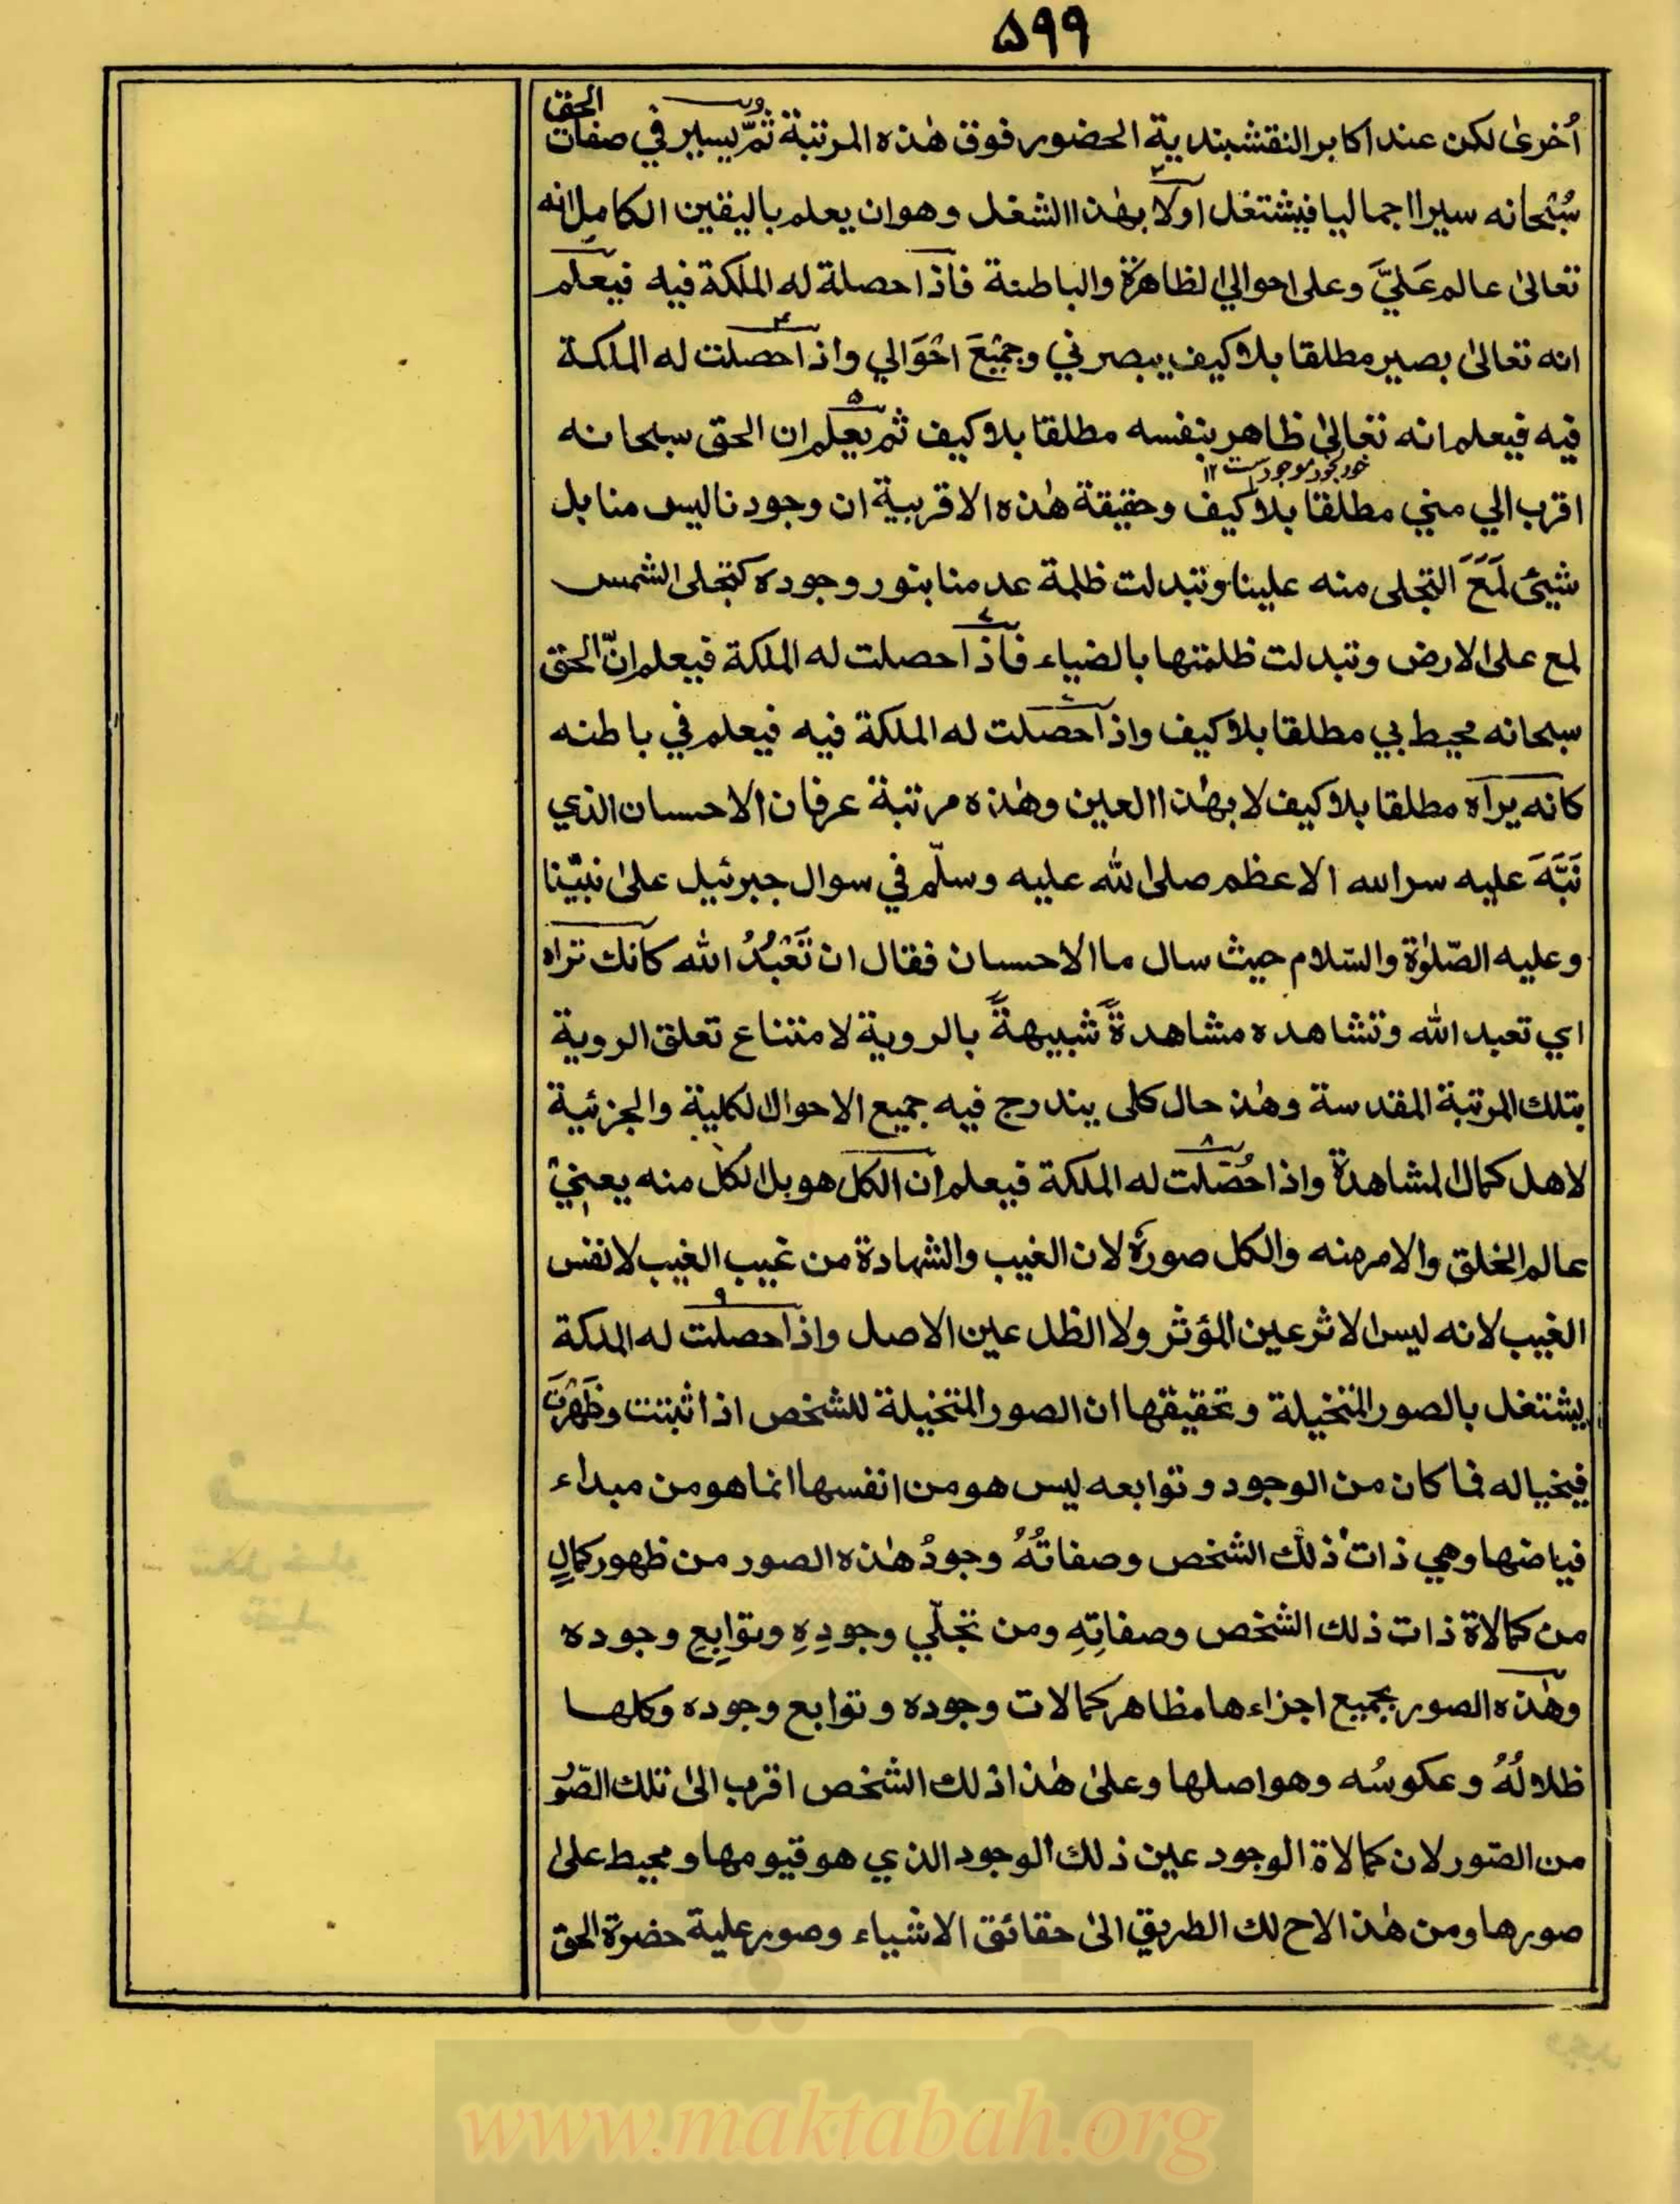 ٥٩٩
أُخرىٰ لكن عند اكابر النقشبندية الحضور فوق هٰذه المرتبة ثمَّ يسير في صفات الحق
سُبْحانه سيرا اجماليا فيشتغل اولا بهٰذا الشغل وهو ان يعلم باليقين الكامل انه
تعالىٰ عالم عَلَيَّ وعلى احوالي الظاهرة والباطنة فاذا حصلة له الملكة فيه فيعلم
انه تعالىٰ بصير مطلقا بلا كيف يبصرني وجَمِيْعَ احْوَالي واذا حصلت له الملكة
فيه فيعلم انه تعالىٰ ظاهر بنفسه مطلقا بلا كيف ثم يعلم ان الحق سبحانه
خود بخود موجود است ١٢
اقرب الي مني مطلقا بلا كيف وحقيقة هٰذه الاقربية ان وجودنا ليس منا بل
شيئ لَمَعَ التجلى منه علينا وتبدلت ظلمة عدمنا بنور وجوده كتجلى الشمس
لمع على الارض وتبدلت ظلمتها بالضياء فاذا حصلت له الملكة فيعلم انّ الحق
سبحانه محيط بي مطلقا بلا كيف واذا حصلت له الملكة فيه فيعلم في باطنه
كانه يراه مطلقا بلا كيف لا بهٰذا العين وهٰذه مرتبة عرفان الاحسان الذي
نَبَّهَ عليه سر الله الاعظم صلى الله عليه وسلّم في سوال جبرئيل علىٰ نبيّنا
وعليه الصّلوٰة والسّلام حيث سال ما الاحسان فقال ان تَعْبُدُ الله كانك تراه
اي تعبد الله وتشاهده مشاهدةً شبيهةً بالروية لامتناع تعلق الروية
بتلك المرتبة المقدسة وهٰذ حال كلى يندرج فيه جميع الاحوال الكلية والجزئية
لاهل كمال المشاهدة واذا حُصّلت له الملكة فيعلم ان الكل هو بل الكل منه يعني
عالم الخلق والامر منه والكل صورةٌ لان الغيب والشهادة من غيب الغيب لا نفس
الغيب لانه ليس الاثر عين المؤثر ولا الظل عين الاصل واذا حصلت له الملكة
يشتغل بالصور المتخيلة وتحقيقها ان الصور المتخيلة للشخص اذا ثبتت وظَهَرَتْ
في خياله فما كان من الوجود وتوابعه ليس هو من انفسها انما هو من مبداء
فياضها وهي ذات ذلك الشخص وصفاتُهُ وجودُ هٰذه الصور من ظهور كمالٍ
من كمالاة ذات ذلك الشخص وصفاتِهِ ومن تجلّي وجودِهِ وتوابِعِ وجوده
وهٰذه الصور بجميع اجزاءها مظاهر كمالات وجوده وتوابع وجوده وكلها
ظلالُهُ وعكوسُه وهو اصلها وعلىٰ هٰذا ذلك الشخص اقرب الىٰ تلك الصّور
من الصّور لان كمالاة الوجود عين ذلك الوجود الذي هو قيومها ومحيط علىٰ
صورها ومن هٰذا لاح لك الطريق الىٰ حقائق الاشياء وصور علية حضرة الحق
www.maktabah.org